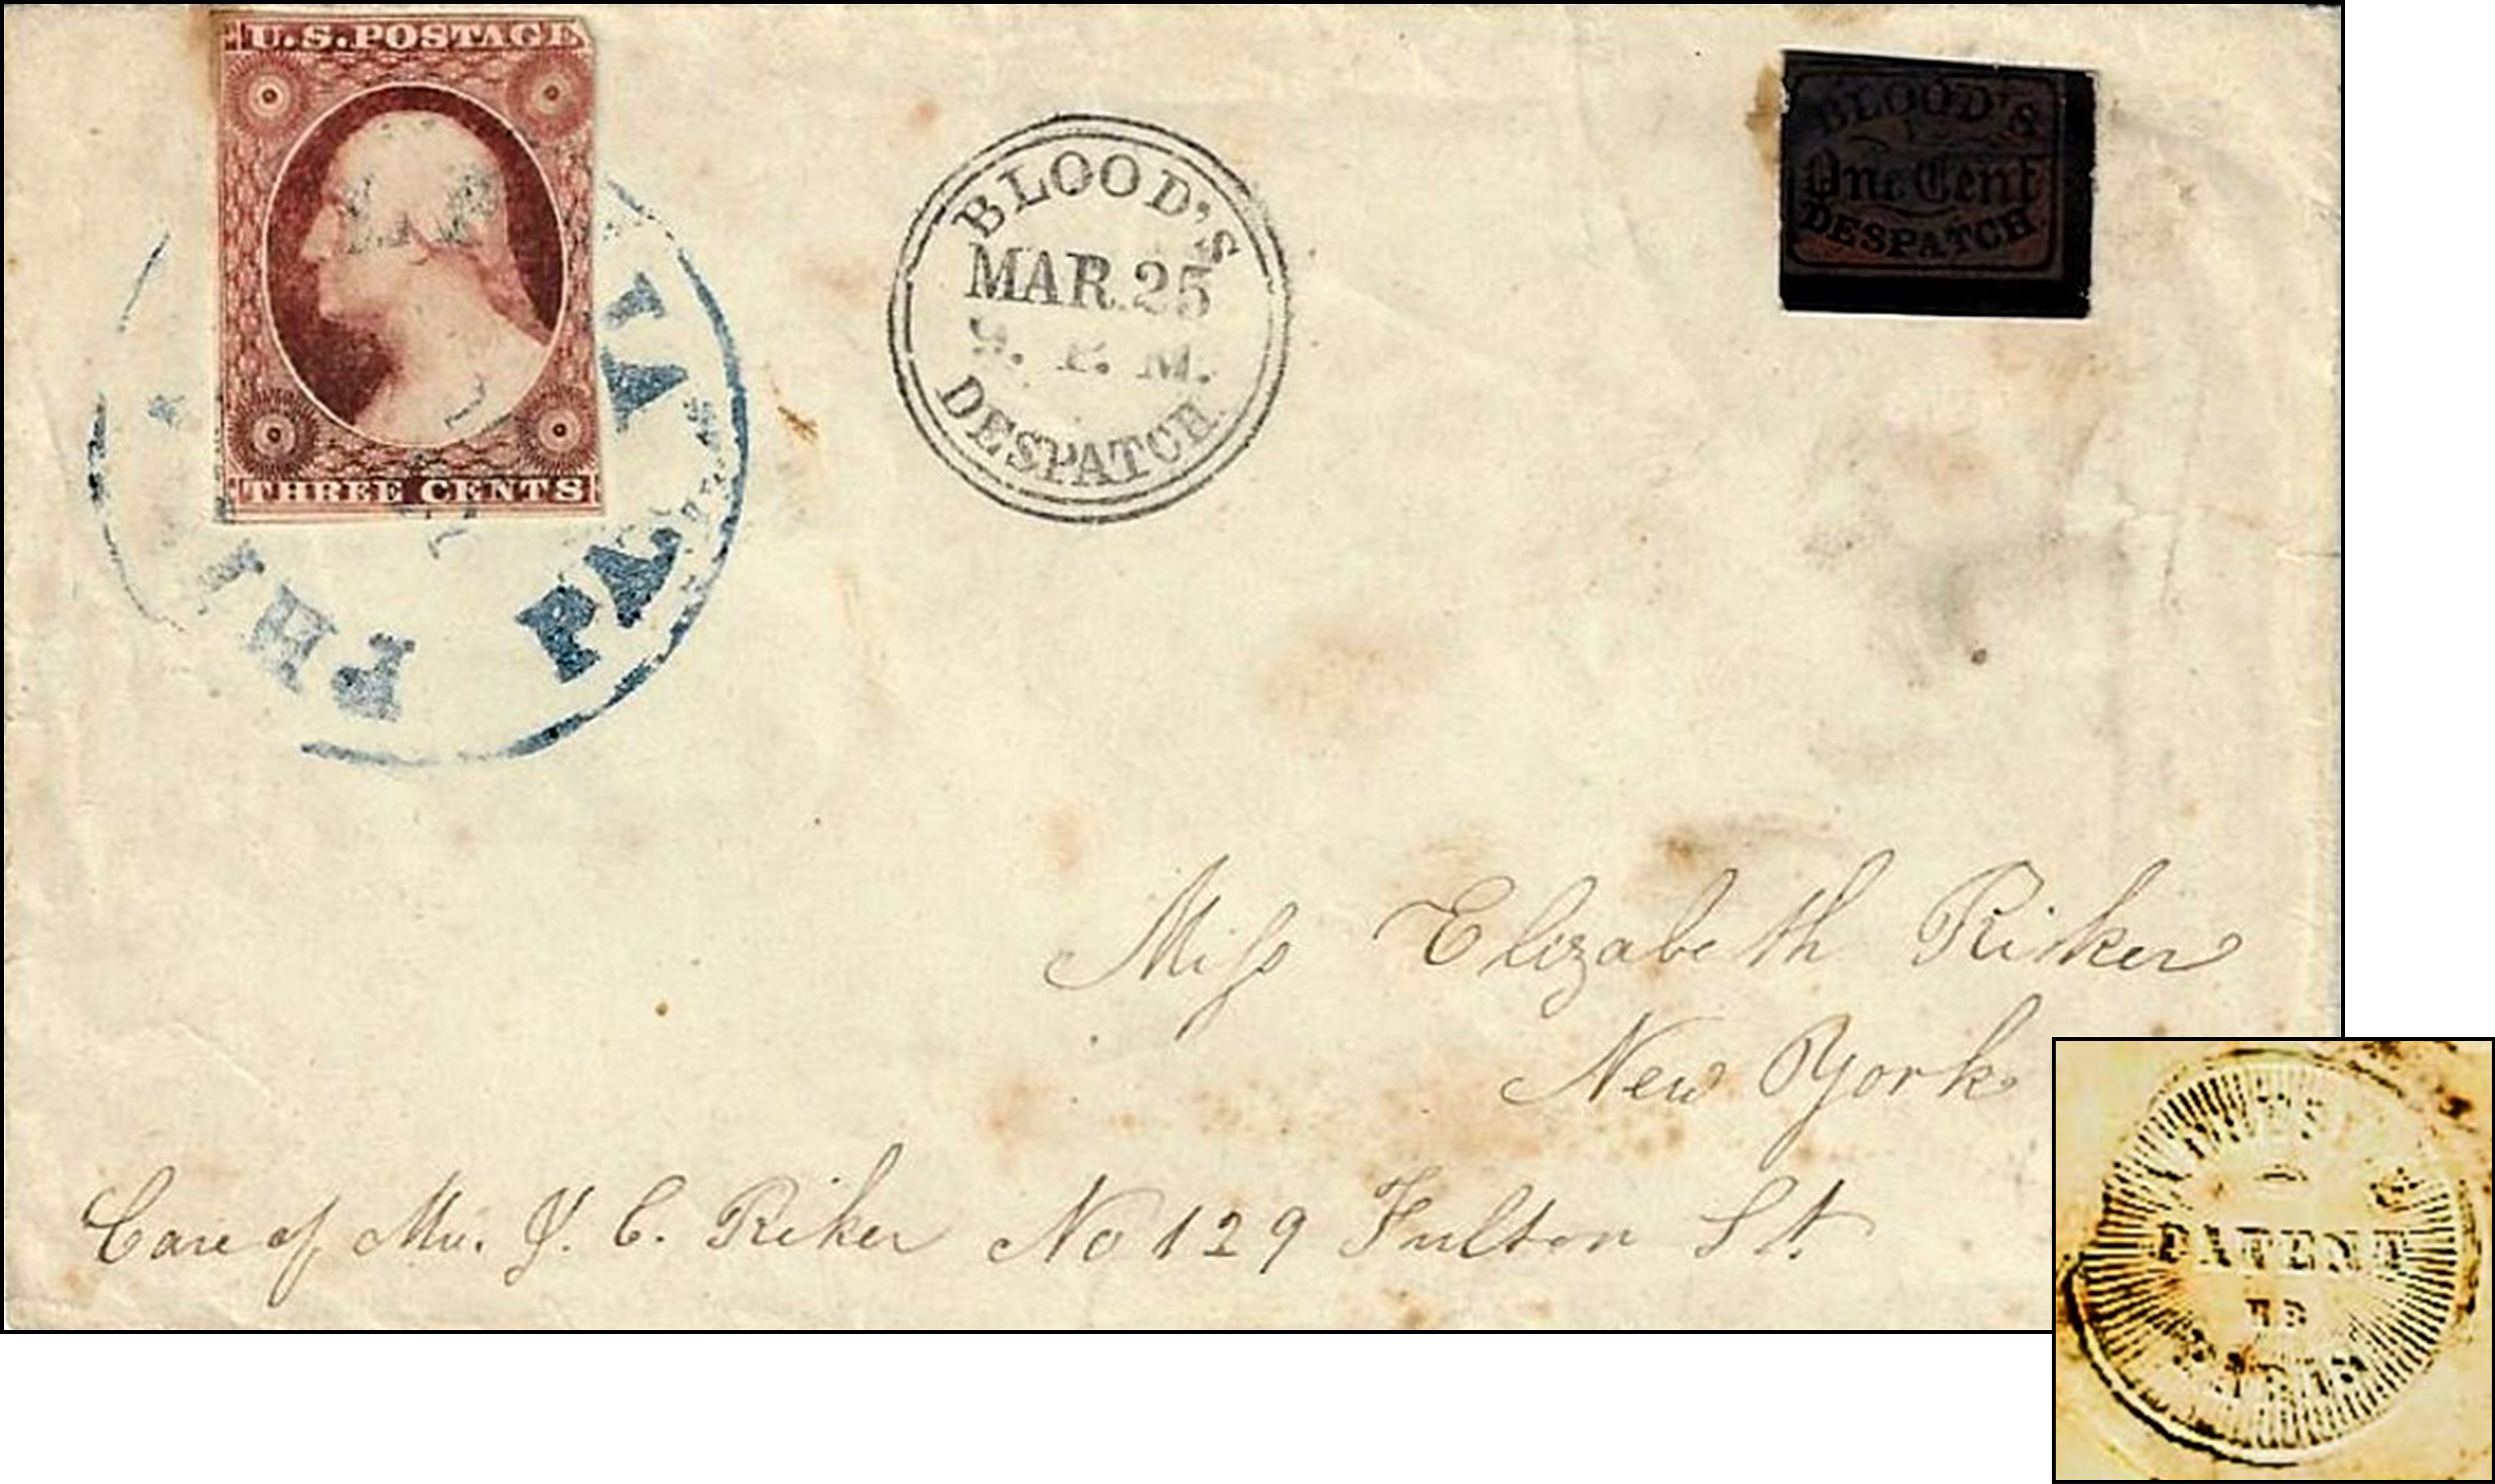 U.S.POSTAGE
THREE CENTS
PHI
PA
BLOOD'S
MAR.25
9. P. M.
DESPATCH
BLOOD'S
One Cent
DESPATCH
Miss Elizabeth Riker
New York
Care of Mr. J. C. Riker No 129 Fulton St.
PATENT